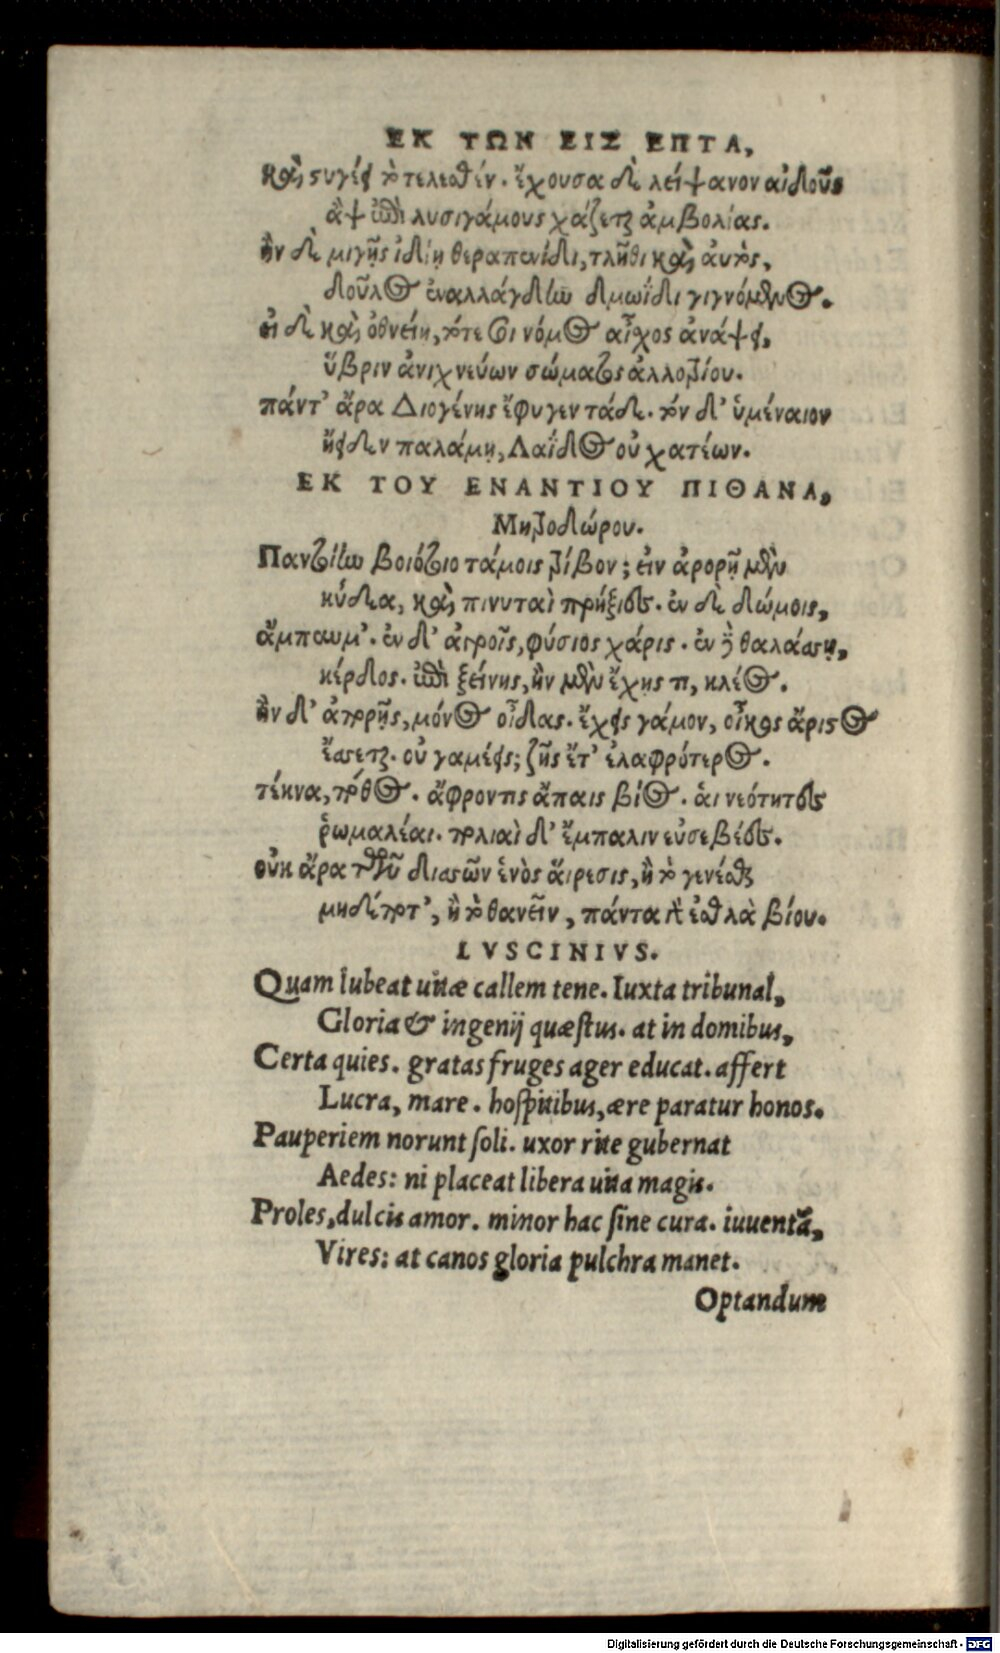 ΕΚ ΤΩΝ ΕΙΣ ΕΠΤΑ,
καὶ στυγέει τὸ τελεσθέν. ἔχουσα δὲ λείψανον αἰδοῦς
ἂψ ἐπὶ λυσιγάμους χάζεται ἀμβολίας.
ἢν δὲ μιγῇς ἰδίῃ θεραπαινίδι, τλῆθι καὶ αὐτὸς,
δοῦλος ἐναλλάγδην δμωΐδι γιγνόμενος.
εἰ δὲ καὶ ὀθνείῃ, τότε σοι νόμος αἶσχος ἀνάψει,
ὕβριν ἀνιχνεύων σώματος ἀλλοτρίου.
πάντ' ἄρα Διογένης ἔφυγεν τάδε. τὸν δ' ὑμέναιον
ἤειδεν παλάμῃ, Λαΐδος οὐ χατέων.
ΕΚ ΤΟΥ ΕΝΑΝΤΙΟΥ ΠΙΘΑΝΑ,
Μητροδώρου.
Παντοίην βιότοιο τάμοις τρίβον; εἰν ἀγορῇ μὲν
κύδεα, καὶ πινυταὶ πρήξιες. ἐν δὲ δώμοις,
ἄμπαυμ'. ἐν δ' ἀγροῖς, φύσιος χάρις. ἐν δὲ θαλάσσῃ,
κέρδος. ἐπὶ ξείνης, ἢν μὲν ἔχῃς τι, κλέος.
ἢν δ' ἀπορῇς, μόνος οἶδας. ἔχεις γάμον, οἶκος ἄριστος
ἔσσεται. οὐ γαμέεις; ζῇς ἔτ' ἐλαφρότερος.
τέκνα, πόθος. ἄφροντις ἄπαις βίος. ἁι νεότητες
ῥωμαλέαι. πολιαὶ δ' ἔμπαλιν εὐσεβέες.
οὐκ ἄρα τῶν δισσῶν ἑνὸς ἅιρεσις, ἢ τὸ γενέσθαι
μηδέποτ', ἢ τὸ θανεῖν, πάντα γὰρ ἐσθλὰ βίου.
LVSCINIVS.
Quam lubeat uitæ callem tene. Iuxta tribunal,
Gloria & ingenij quæstus. at in domibus,
Certa quies. gratas fruges ager educat. affert
Lucra, mare. hospitibus, ære paratur honos.
Pauperiem norunt soli. uxor rite gubernat
Aedes: ni placeat libera uita magis.
Proles, dulcis amor. minor hac sine cura. iuuentã,
Vires: at canos gloria pulchra manet.
Optandum
Digitalisierung gefördert durch die Deutsche Forschungsgemeinschaft - DFG